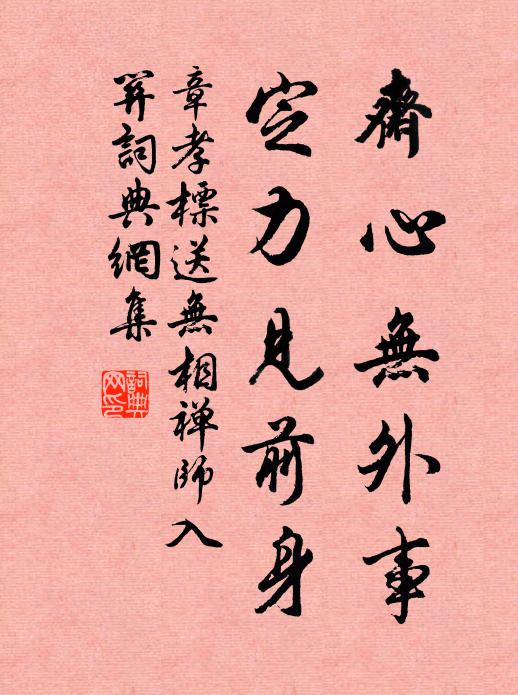 齋心無外事
定力見前身
章孝標送無相禅師入
關詞典網集
詞典
网印